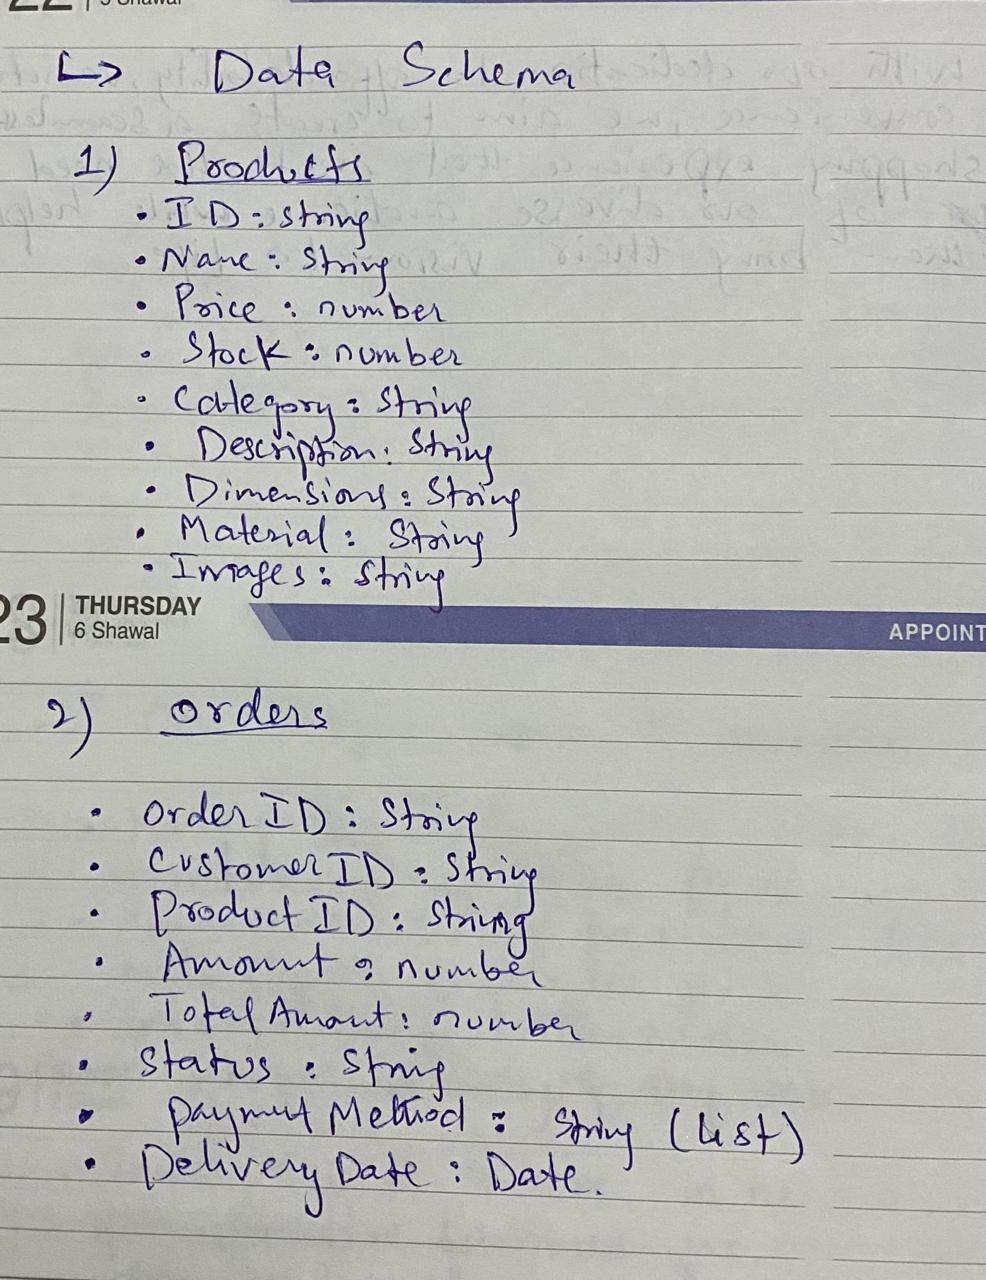 5 Shawal
↳ Data Schema
1) Products
• ID : string
• Name : String
• Price : number
• Stock : number
• Category : String
• Description : String
• Dimensions : String
• Material : String
• Images : String
23 THURSDAY
6 Shawal
APPOINT
2) orders
• Order ID : String
• Customer ID : String
• Product ID : String
• Amount : number
• Total Amount : number
• Status : String
• Payment Method : String (List)
• Delivery Date : Date.